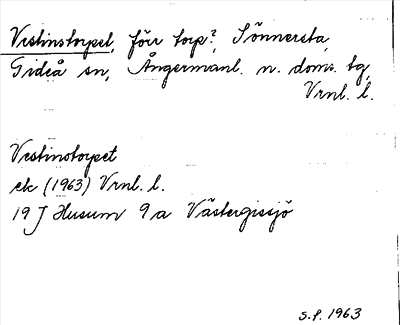 Vestinstorpet, förr torp?, Sönnersta,
Gideå sn, Ångermanl. n. doms. tg,
Vrnl. l.
Vestinstorpet
ek (1963) Vrnl. l.
19 J Husum 9 a Västergissjö
S.f. 1963